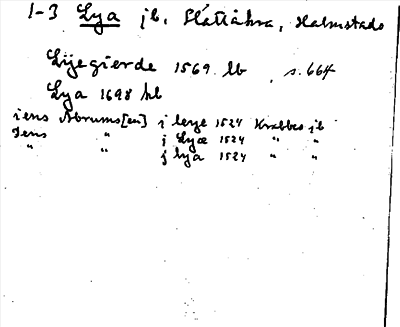 1-3 Lya jb. Slättåkra, Halmstads
Lijegierde 1569 lb , s. 664
Lya 1698 hl
iens Abrums[en] j leye 1524 Krabbes jb
Jens " j Lyæ 1524 " "
" " j lya 1524 " "